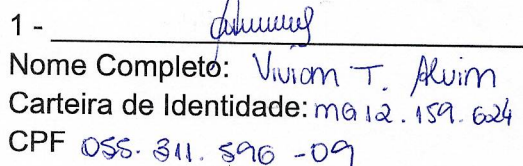 1 -
Nome Completo: Viviam T. Alvim
Carteira de Identidade: MG 12.159.624
CPF 055.311.596-09